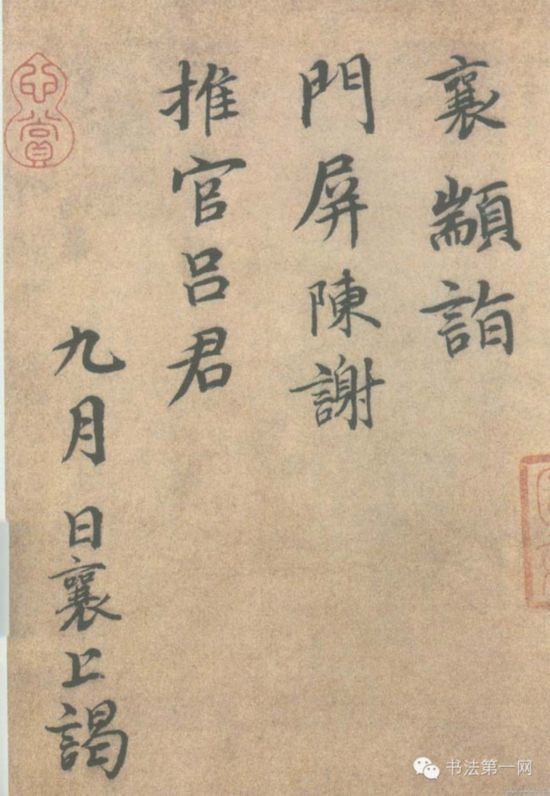 襄顓詣
門屏陳謝
推官呂君
九月 日襄上謁
书法第一网